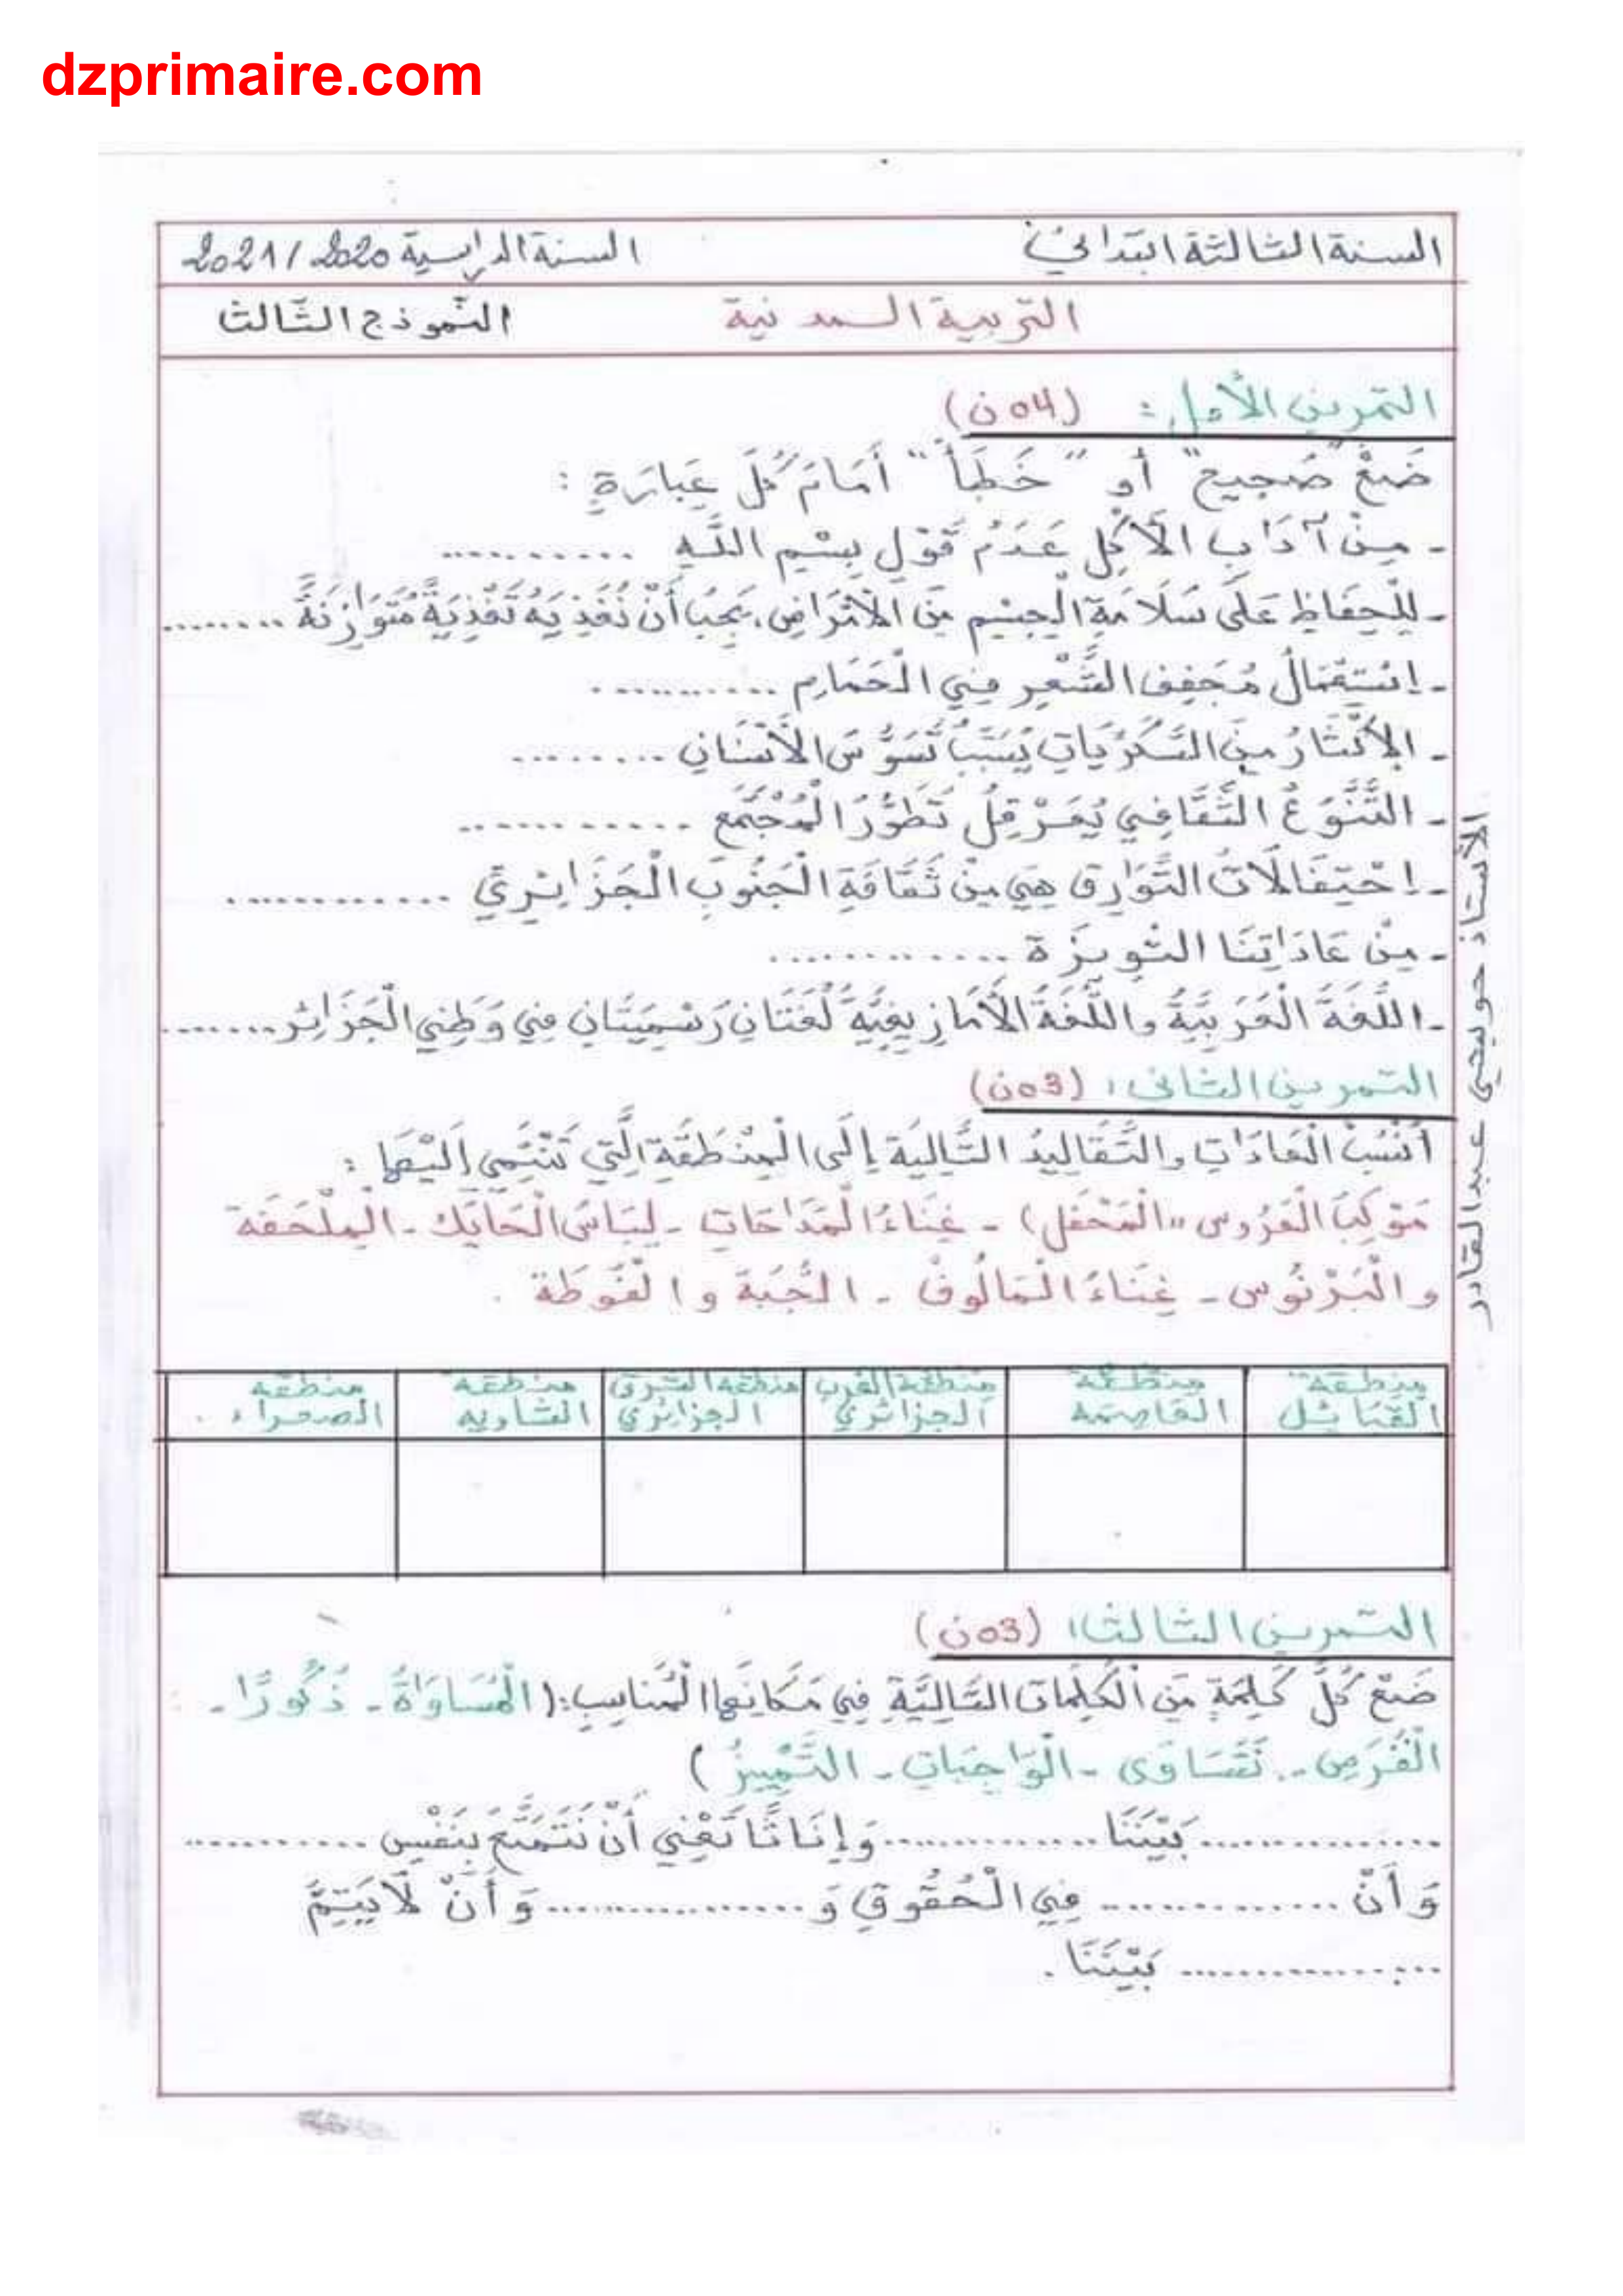 dzprimaire.com
السنة الثالثة ابتدائي السنة الدراسية 2020/2021
التربية المدنية النموذج الثالث
التمرين الأول: (04ن)
ضَعْ "صَحِيح" أو "خَطَأ" أَمَامَ كُلِّ عِبَارَةٍ :
- مِنْ آدَابِ الأَكْلِ عَدَمُ قَوْلِ بِسْمِ اللَّهِ ...........
- لِلْحِفَاظِ عَلَى سَلَامَةِ الْجِسْمِ مِنَ الأَمْرَاضِ، يَجِبُ أَنْ نُغَذِّيَهُ تَغْذِيَةً مُتَوَازِنَةً ........
- اسْتِعْمَالُ مُجَفِّفِ الشَّعْرِ فِي الْحَمَّامِ ...........
- الإِكْثَارُ مِنَ السُّكَّرِيَّاتِ يُسَبِّبُ تَسَوُّسَ الأَسْنَانِ .........
- التَّنَوُّعُ الثَّقَافِي يُعَرْقِلُ تَطَوُّرَ الْمُجْتَمَعِ ............
- احْتِفَالَاتُ التَّوَارِق هِيَ مِنْ ثَقَافَةِ الْجَنُوبِ الْجَزَائِرِيِّ ............
- مِنْ عَادَاتِنَا التْوِيزَة .............
- اللُّغَةُ الْعَرَبِيَّةُ واللُّغَةُ الأَمَازِيغِيَّةُ لُغَتَانِ رَسْمِيَّتَانِ فِي وَطَنِي الْجَزَائِر........
التمرين الثاني: (03ن)
أَنْسُبْ الْعَادَاتِ والتَّقَالِيدُ التَّالِيَة إِلَى الْمِنْطَقَةِ الَّتِي تَنْتَمِي إِلَيْهَا :
مَوْكِبُ الْعَرُوس "الْمَحْفَل) - غِنَاءُ الْمَدَّاحَاتِ - لِبَاسُ الْحَايَك - الْمِلْحَفَة
والْبَرْنُوس - غِنَاءُ الْمَالُوفْ - الْجُبَّة و الْفُوطَة .
منطقة القبائل | منطقة العاصمة | منطقة الغرب الجزائري | منطقة الشرق الجزائري | منطقة الشاوية | منطقة الصحراء .
التمرين الثالث: (03ن)
ضَعْ كُلَّ كَلِمَةٍ مِنَ الْكَلِمَاتِ التَّالِيَّةِ فِي مَكَانِهَا الْمُنَاسِبِ:( الْمُسَاوَاةُ - ذُكُورًا -
الْفُرَصِ - نَتَسَاوَى - الْوَاجِبَاتِ - التَّمْيِيزُ )
................ بَيْنَنَا .............. وَإِنَاثًا تَعْنِي أَنْ نَتَمَتَّعَ بِنَفْسِ ............
وَ أَنْ ............... فِي الْحُقُوقِ وَ ................ وَ أَنْ لَا يَتِمَّ
................ بَيْنَنَا .
الأستاذ حويبحي عبد القادر